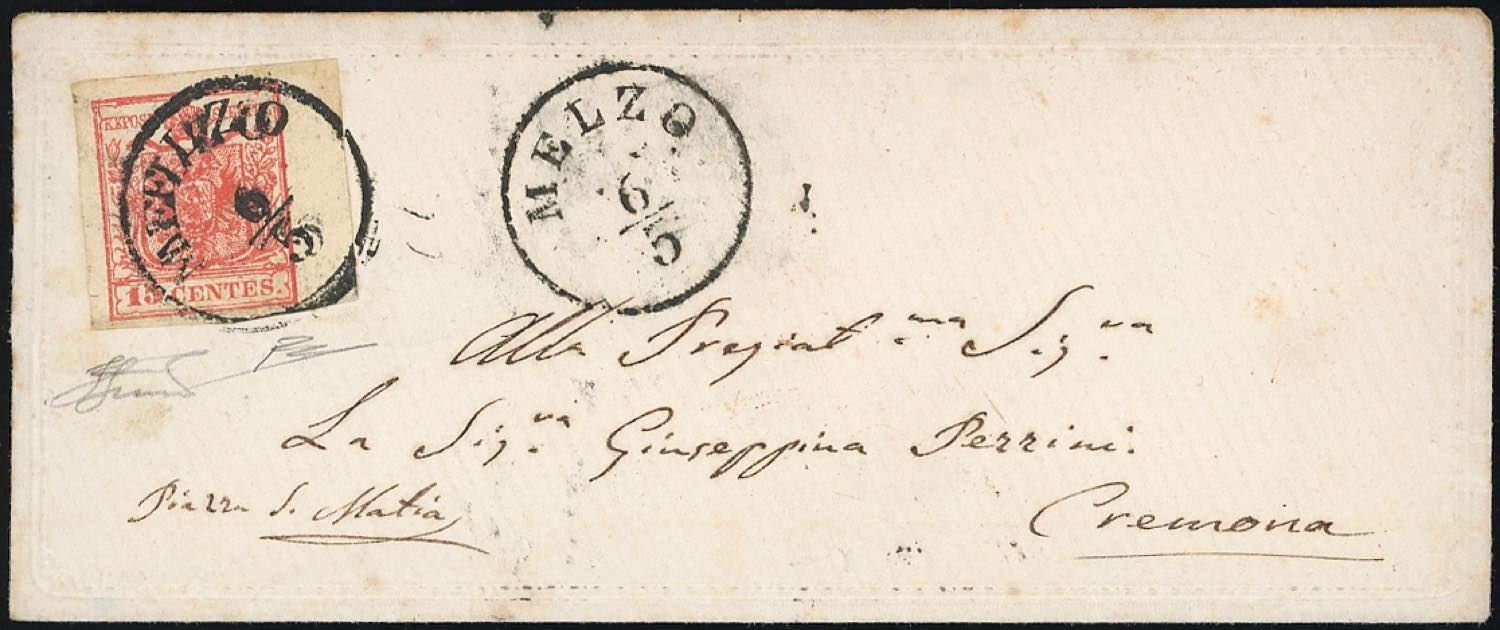 KKPOST
15 CENTES.
MELZO
6/5
MELZO
6/5
Alla Pregiat.ma Sig.ra
La Sig.ra Giuseppina Perrini.
Piazza S. Matia
Cremona